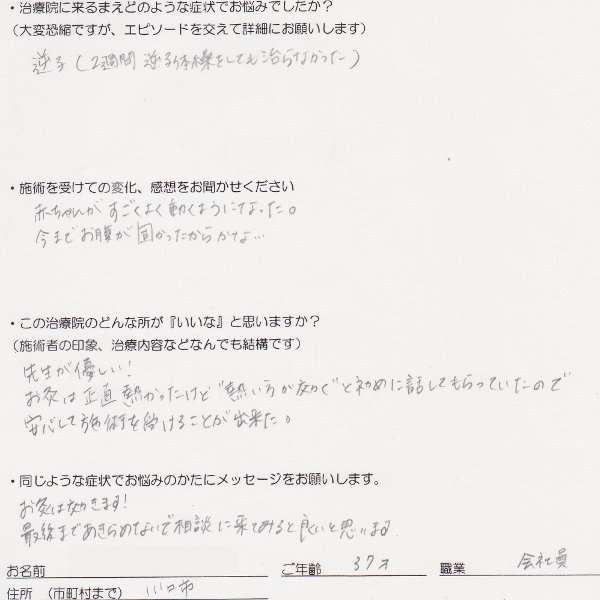 ・治療院に来るまえどのような症状でお悩みでしたか？
（大変恐縮ですが、エピソードを交えて詳細にお願いします）
逆子（2週間 逆子体操をしても治らなかった）
・施術を受けての変化、感想をお聞かせください
赤ちゃんが すごくよく動くようになった。
今までお腹が固かったからかな…
・この治療院のどんな所が『いいな』と思いますか？
（施術者の印象、治療内容などなんでも結構です）
先生が優しい！
お灸は正直熱かったけど“熱い方が効く”と初めに話してもらっていたので
安心して施術を受けることが出来た。
・同じような症状でお悩みのかたにメッセージをお願いします。
お灸は効きます！
最後まであきらめないで相談に来てみると良いと思います
お名前 ご年齢 37才 職業 会社員
住所（市町村まで） 川口市